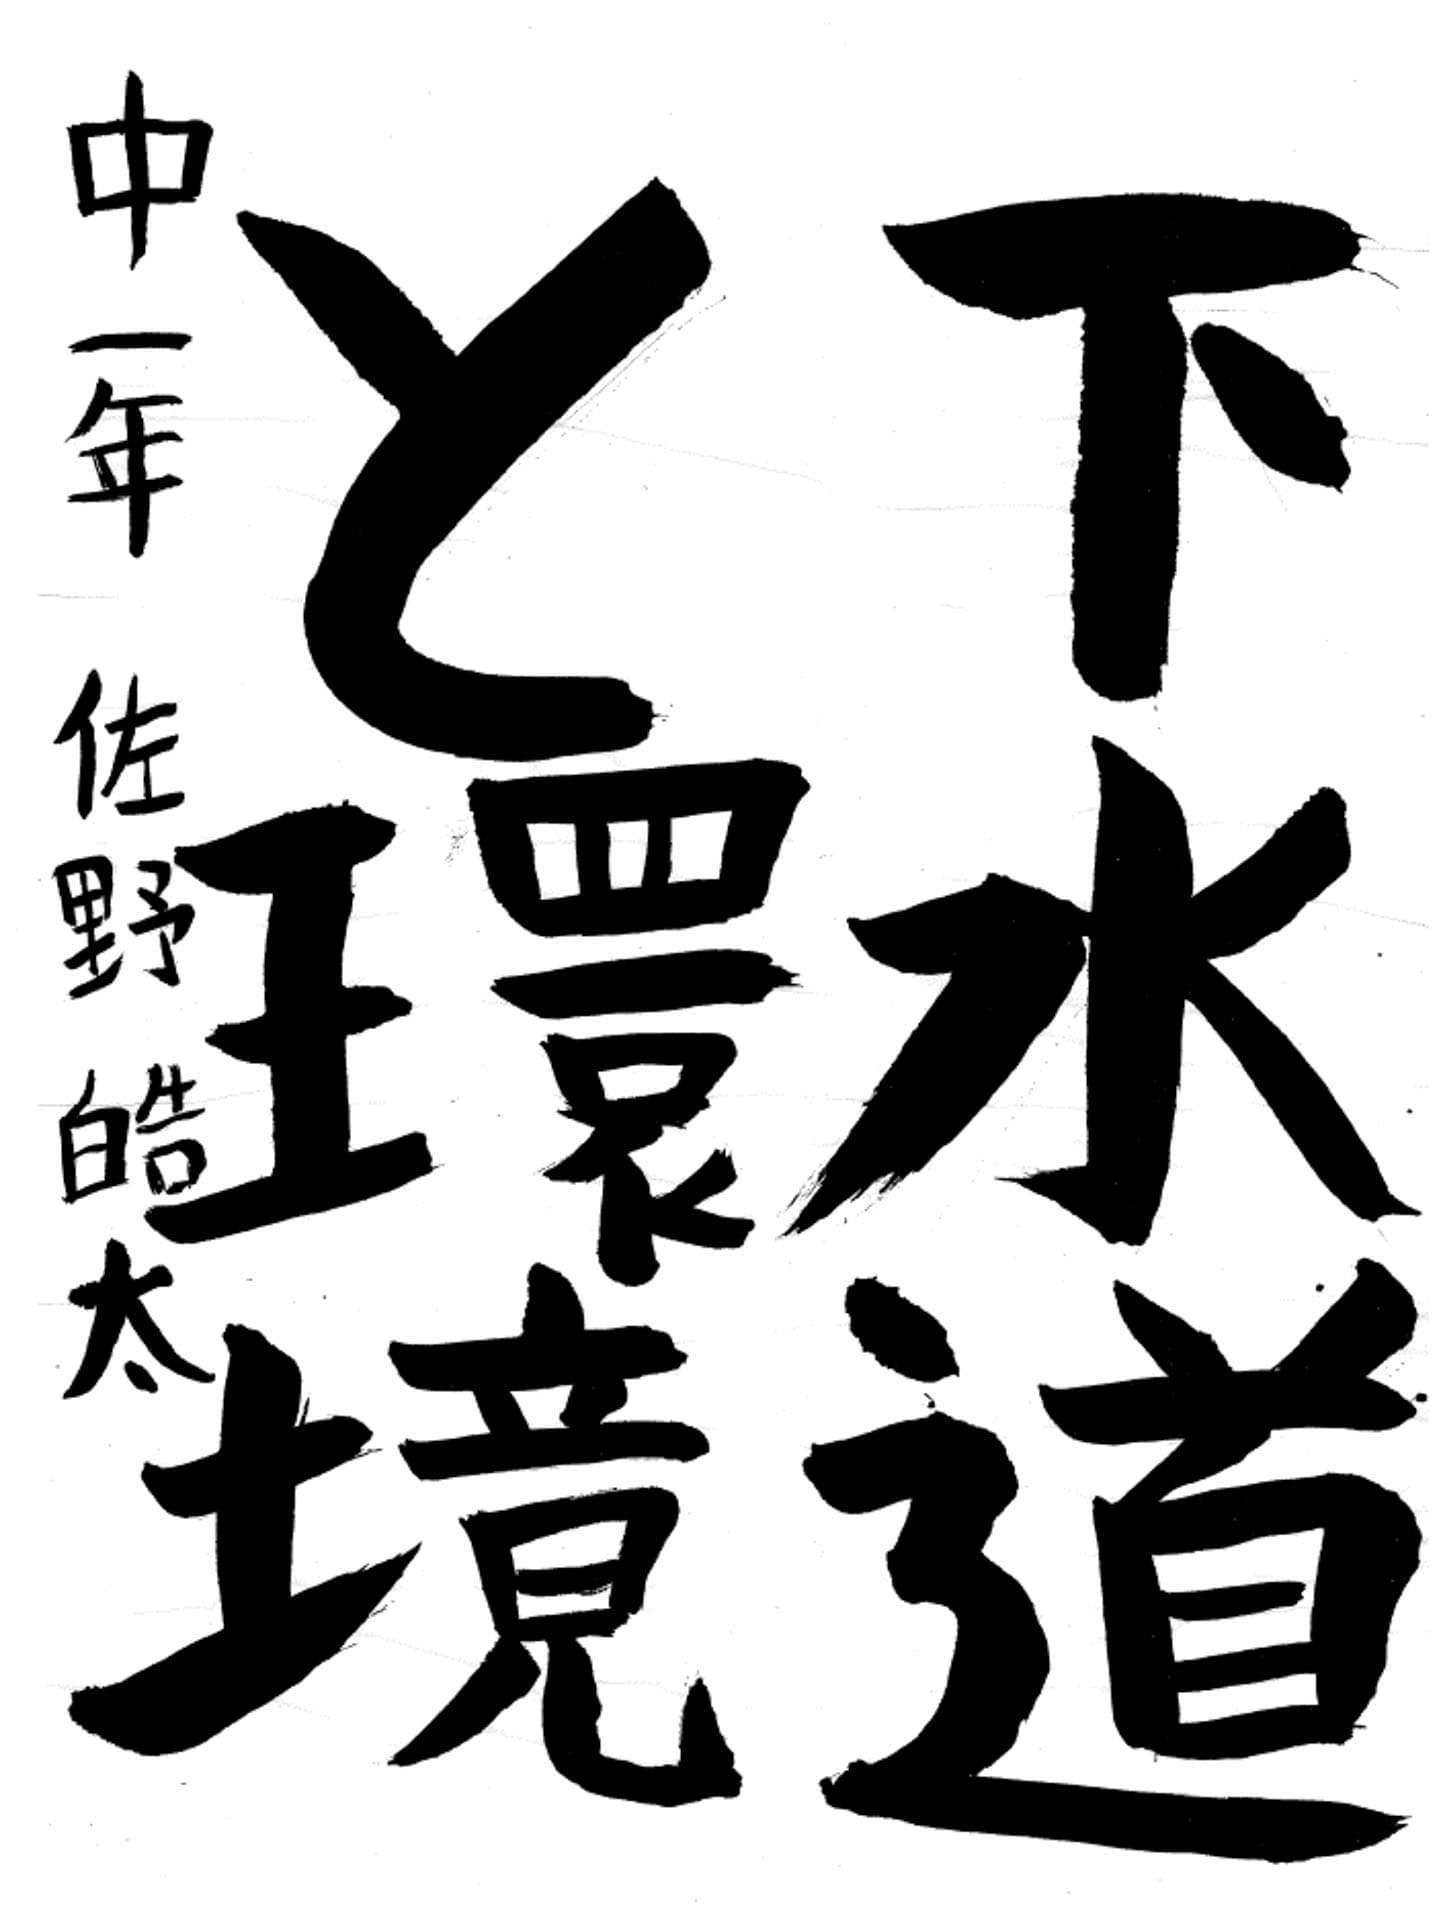 下水道
と環境
中一年 佐野皓太